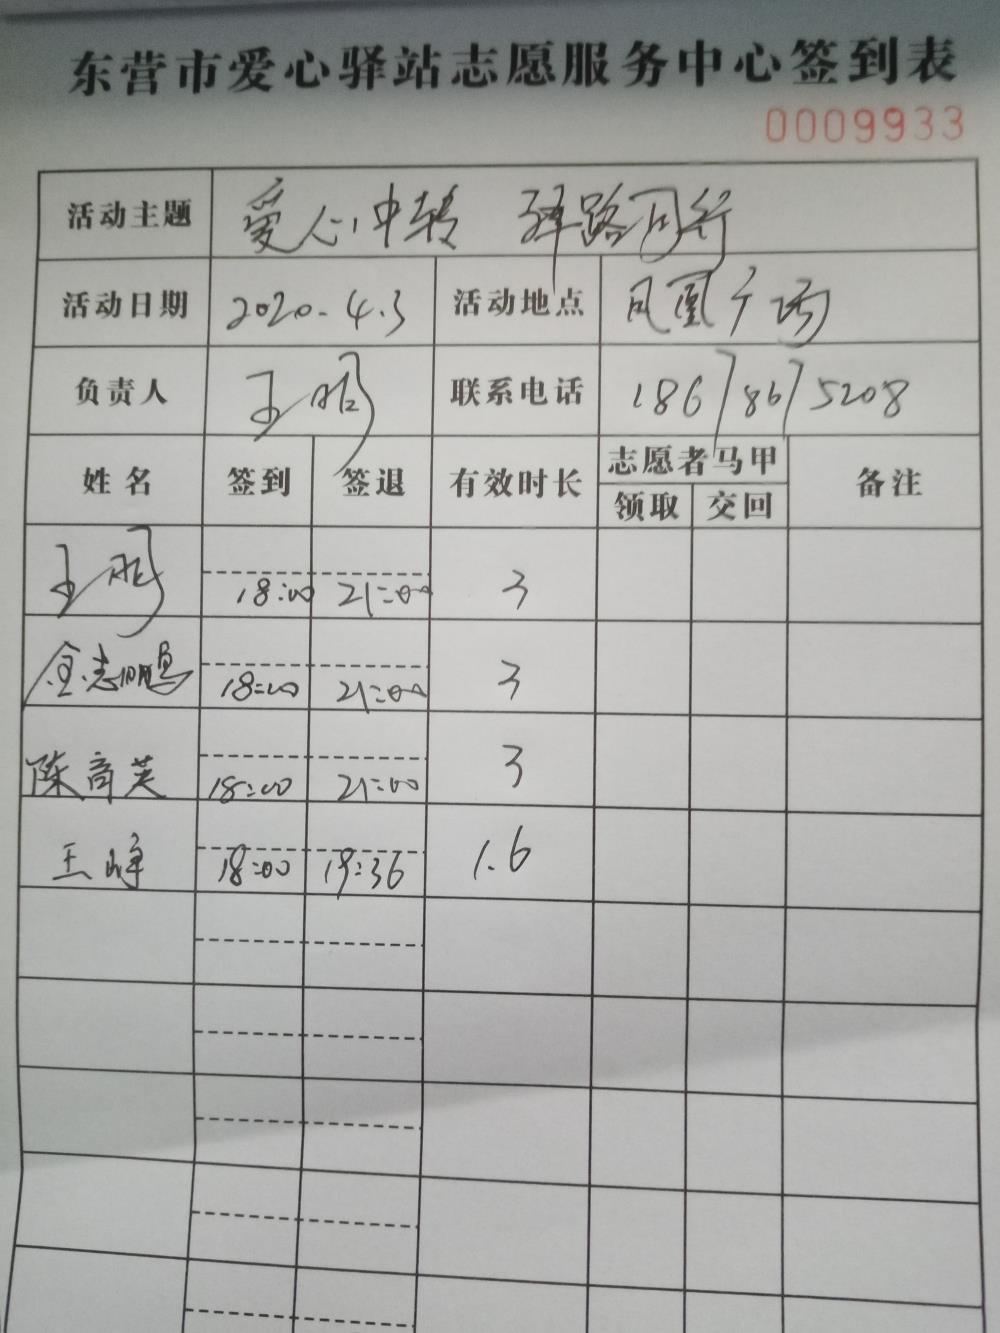 东营市爱心驿站志愿服务中心签到表
0009933
活动主题 爱心中转 驿路同行
活动日期 2020.4.3 活动地点 凤凰广场
负责人 王鹏 联系电话 18678675208
姓名 签到 签退 有效时长 志愿者马甲 备注
领取 交回
王鹏 18:00 21:00 3
18:00 21:00 3
18:00 21:00 3
王峰 18:00 19:36 1.6